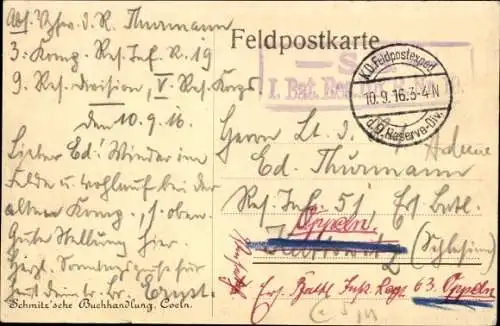 Abs. Vzfw. d. R. Thurmann
3. Komp. Res. Inf. R. 19
9. Res. Division, V. Res. Korps
den 10. 9. 16.
Lieber Ed! Wieder im
Felde u. wohlauf bei der
alten Komp. s. oben.
Gute Stellung hier
Herzl. Sonntagsgrüße für
heut dein tr. Br. Ernst.
Schmitz'sche Buchhandlung, Coeln.
Feldpostkarte
S.
I. Bat. Res.
K.D. Feldpostexped.
10.9.16.3-4N
d. 9. Reserve-Div.
Herrn Lt. d.
Ed. Thurmann
Res. Inf. 51 Ers. Batl.
Oppeln.
Kattowitz
(Schlesien)
Ers. Batl. Inf. Rgt. 63. Oppeln